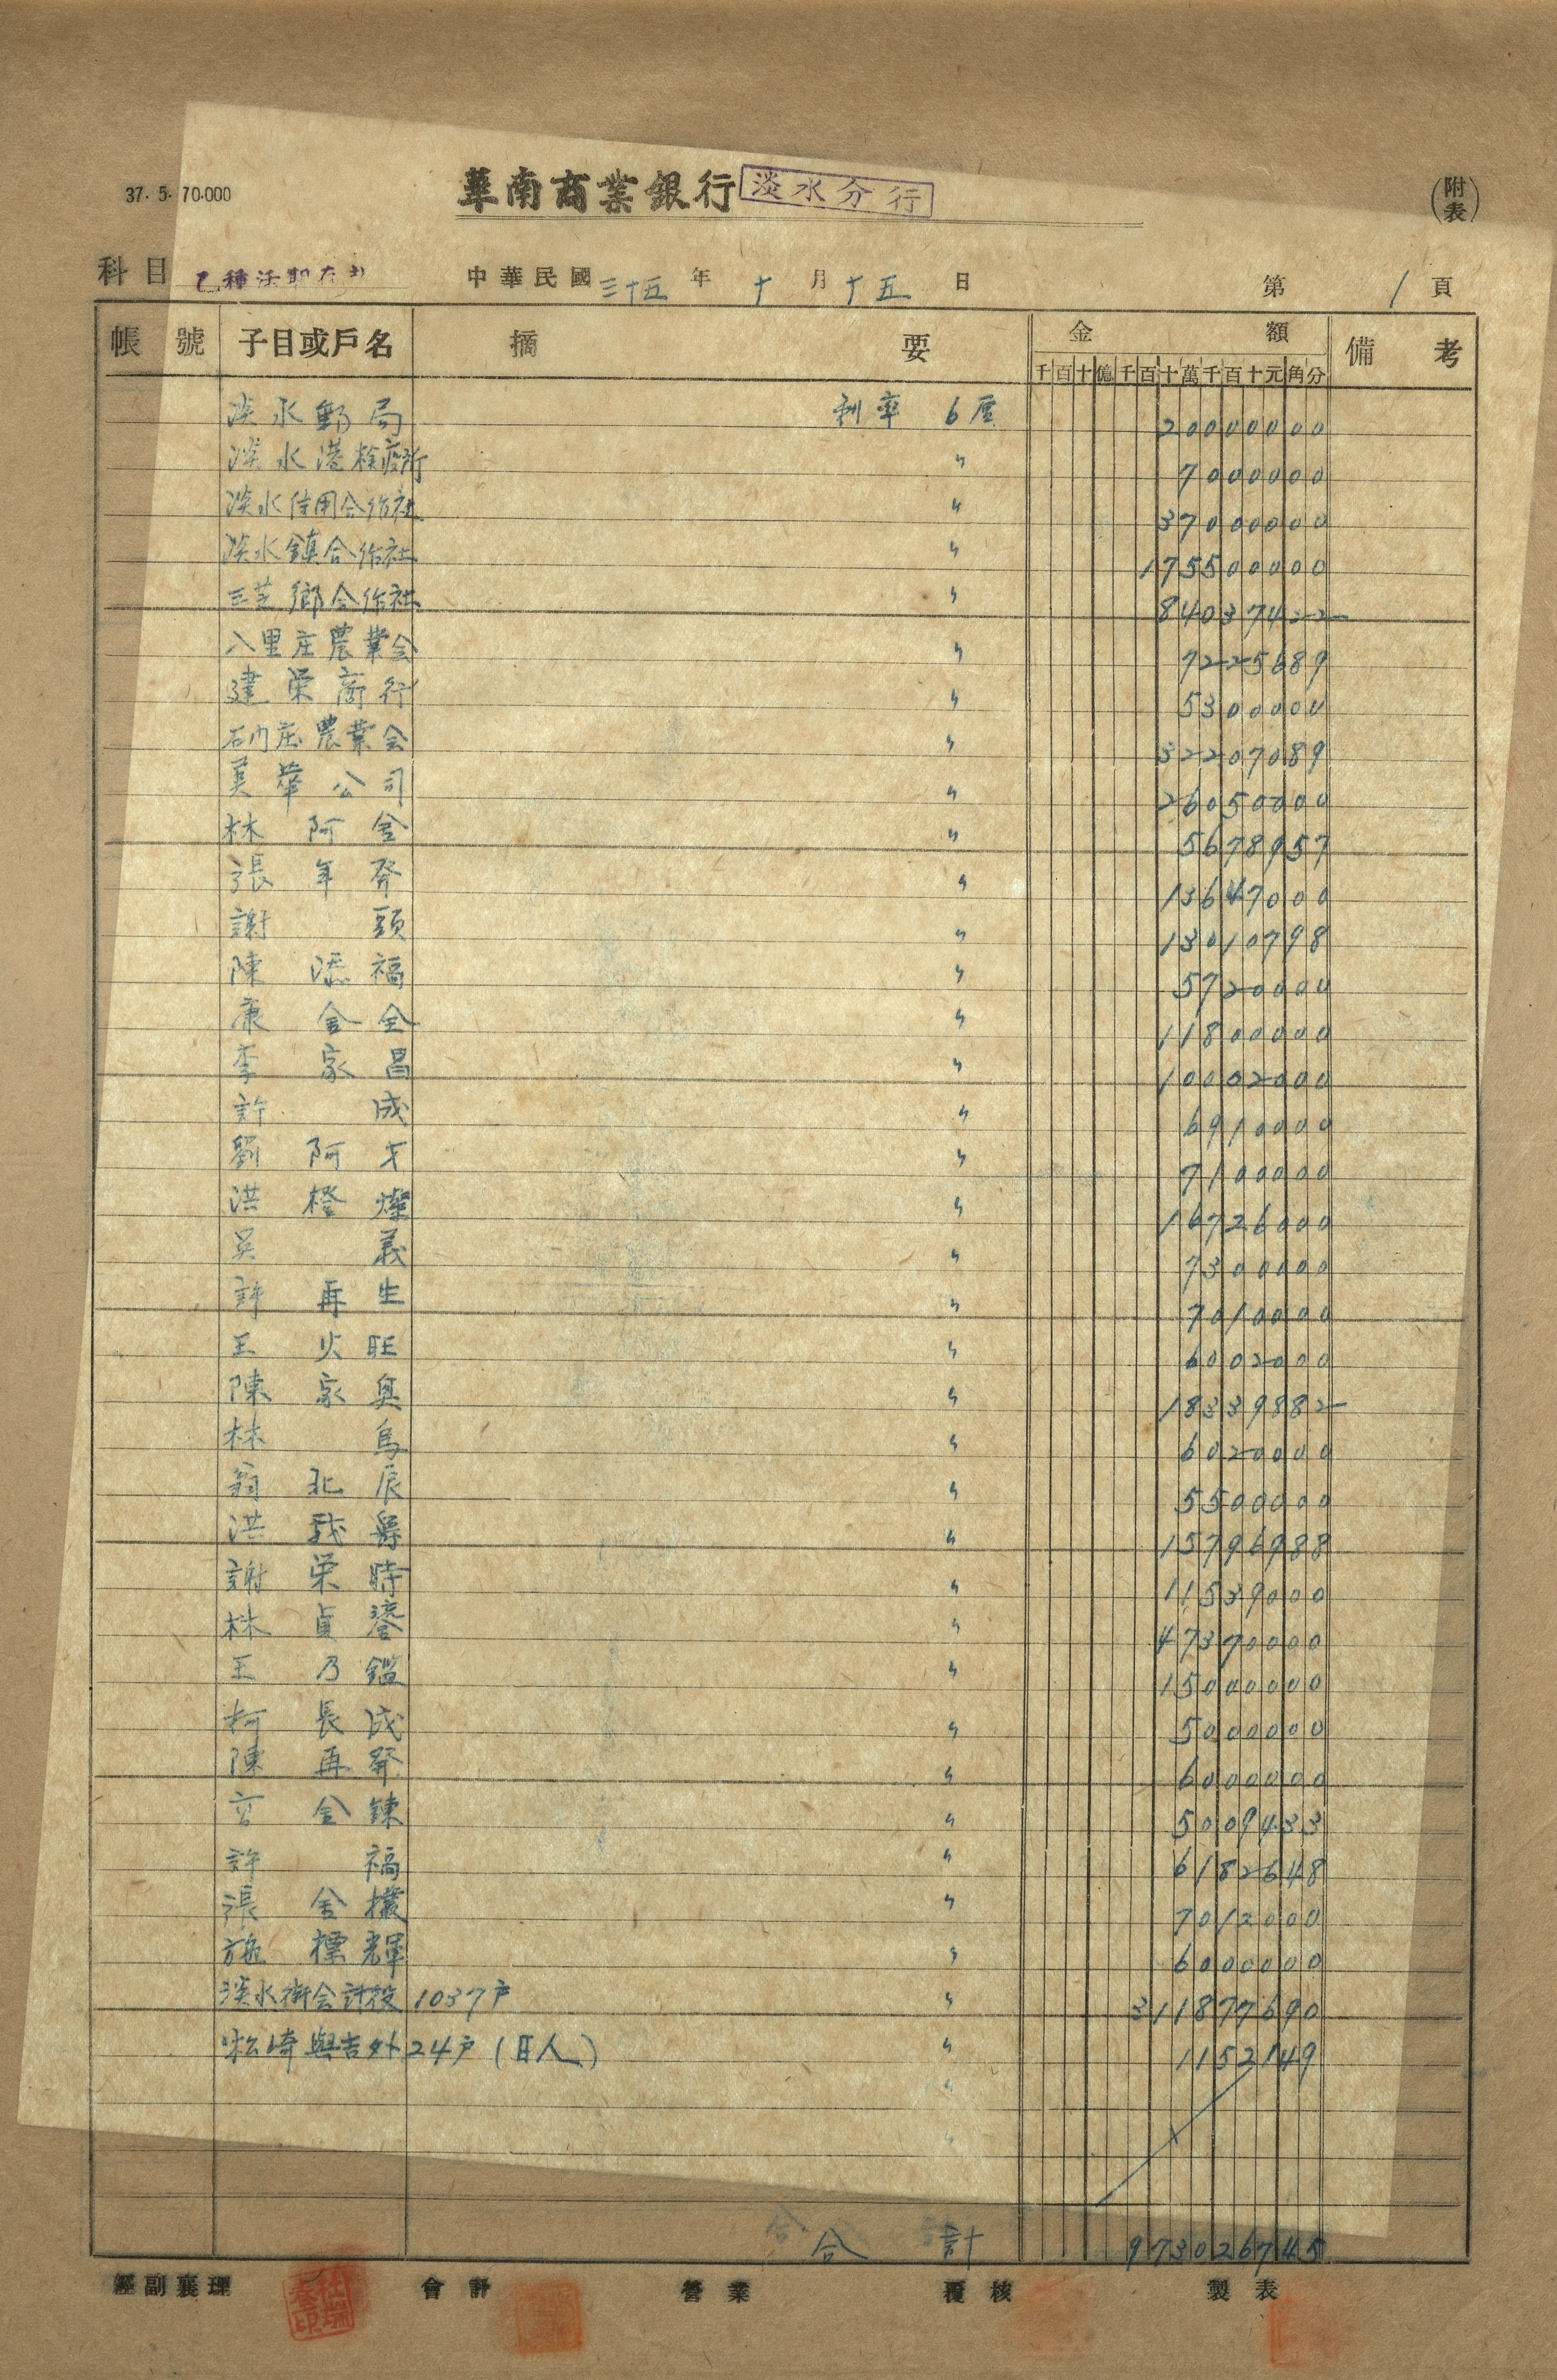 37. 5. 70.000
華南商業銀行 淡水分行
(附表)
科目 乙種活期存款 中華民國 三十五 年 十 月 十五 日 第 1 頁
帳號 子目或戶名 摘要 金額 備考
千百十億千百十萬千百十元角分
淡水郵局 利率 6厘 20000000
淡水港検疫所 〃 7000000
淡水信用合作社 〃 37000000
淡水鎮合作社 〃 175500000
三芝鄉合作社 〃 84037422
八里庄農業会 〃 7225689
建栄商行 〃 5300000
石門庄農業会 〃 32207089
英華公司 〃 26050000
林阿舍 〃 5678957
張年發 〃 13647000
謝頭 〃 13010798
陳添福 〃 5720000
康金全 〃 11800000
李家昌 〃 10002000
許成 〃 6910000
劉阿才 〃 7100000
洪橙燦 〃 16726000
吳義 〃 7300000
許再生 〃 7010000
王火旺 〃 6002000
陳家奥 〃 18339882
林烏 〃 6020000
翁北辰 〃 5500000
洪爵 〃 15796988
謝栄時 〃 11539000
林貞 〃 47370000
王乃鑑 〃 15000000
柯長成 〃 5000000
陳再發 〃 6000000
金鍊 〃 5009433
許福 〃 6182648
張 〃 7012000
施標輝 〃 6000000
淡水街会計役 1037戶 〃 311877690
松崎與吉外24戶(日人) 〃 1152149
〃
合計 973026745
經副襄理 會計 營業 覆核 製表
杜瑞
印